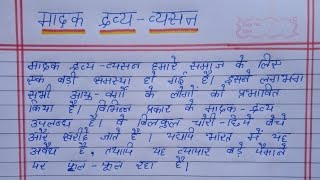 मादक द्रव्य-व्यसन
मादक द्रव्य-व्यसन हमारे समाज के लिए
एक बड़ी समस्या हो गई है। इसने लगभग
सभी आयु-वर्गों के लोगों को प्रभावित
किया है। विभिन्न प्रकार के मादक-द्रव्य
उपलब्ध हैं। वे बिलकुल चोरी-छिपे बेचे
और खरीदे जाते हैं। यद्यपि भारत में यह
अवैध है, तथापि यह व्यापार बड़े पैमाने
पर फूल-फूल रहा है।